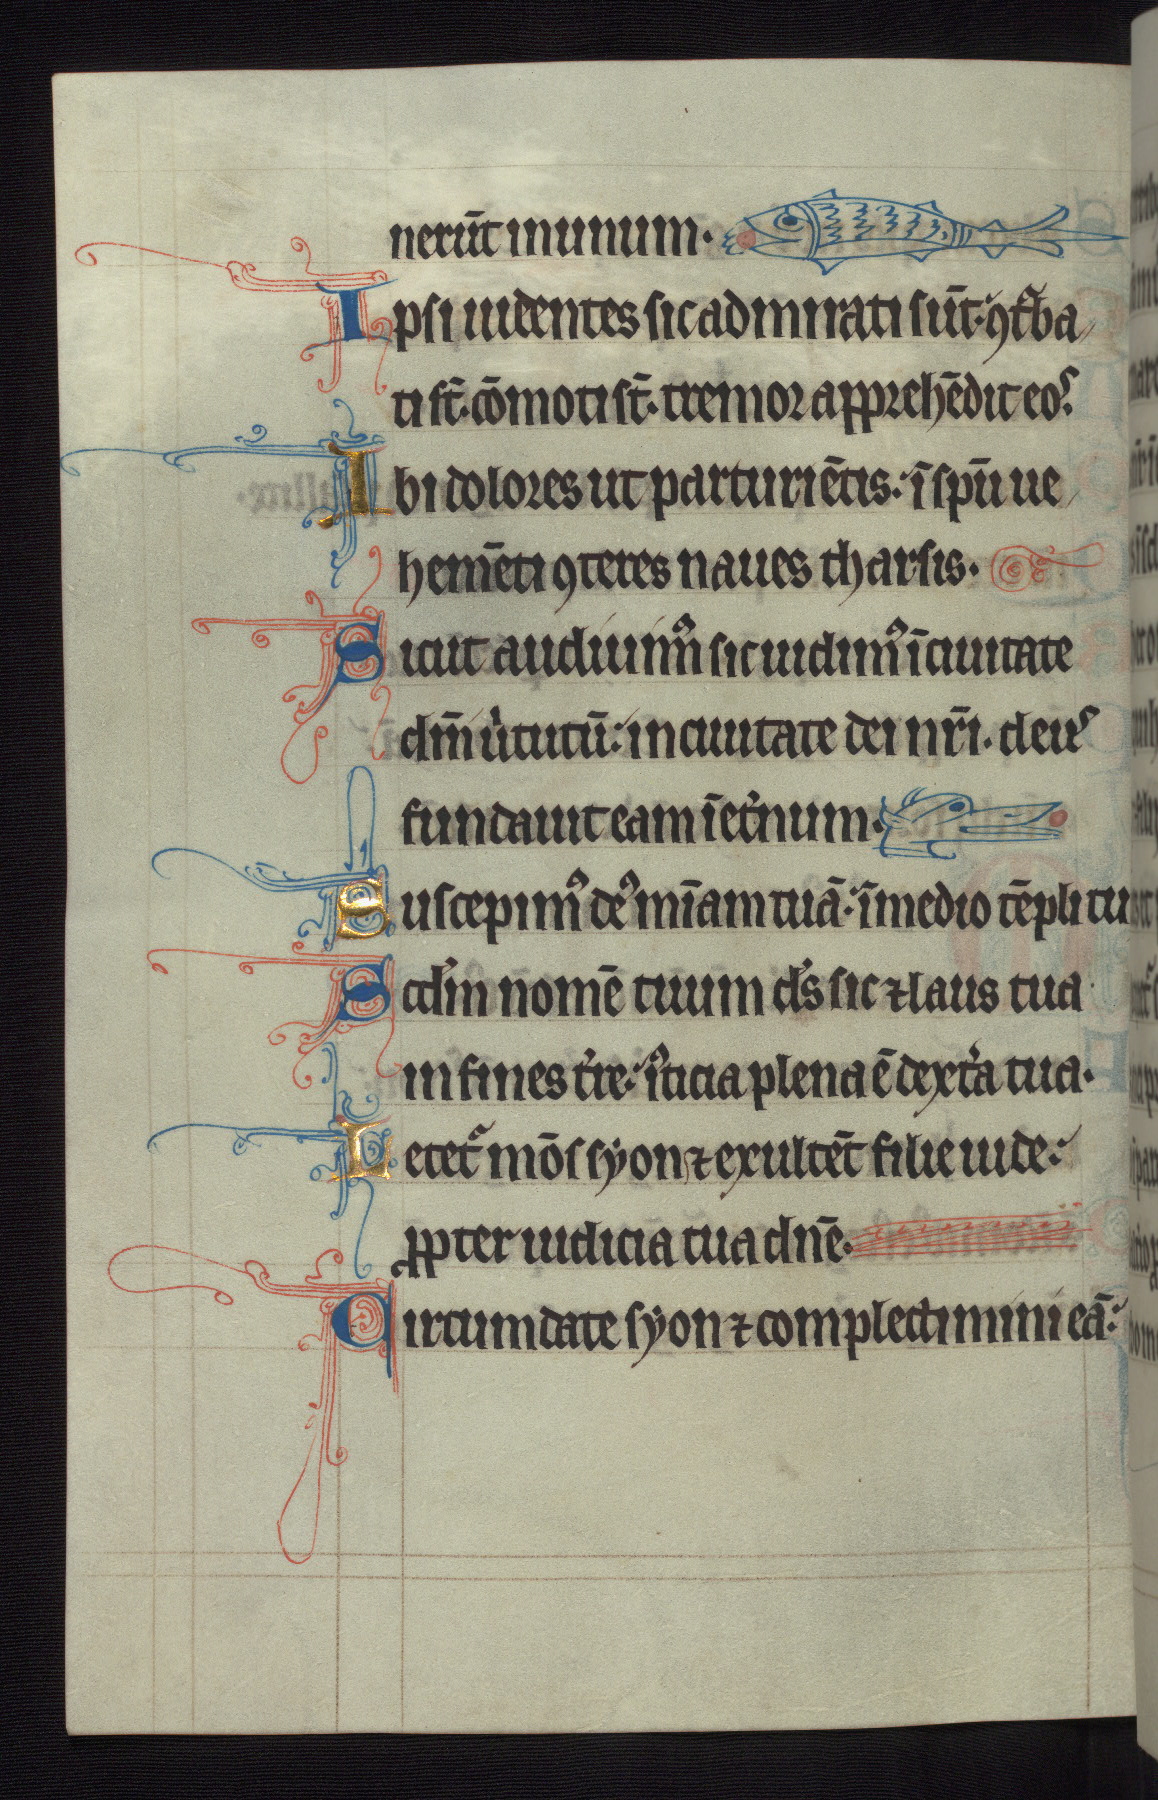 nerūt inunum.
Ipsi uidentes sic admirati sūt: ꝯtᵃba
ti st̄. cōmoti st̄. tremor apprehēdit eos.
Ibi dolores ut parturiētis: ī spū ue
hemēti ꝯteres naues tharsis.
Sicut audiuimꝰ sic uidimꝰ ī ciuitate
dn̄i uͥtutū: in ciuitate dei nr̄i. deus
fundauit eam ī et̓num.
Suscepimꝰ deꝰ mīam tuā: ī medio tēpli tu
Scdm̄ nomē tuum ds̄ sic ⁊ laus tua
in fines t̓re: iꝰticia plena ē dext̓a tua.
Letetᷣ mōs syon ⁊ exultēt filie iude:
ꝓpter iudicia tua dn̄e.
Circumdate syon ⁊ complectimini eā: